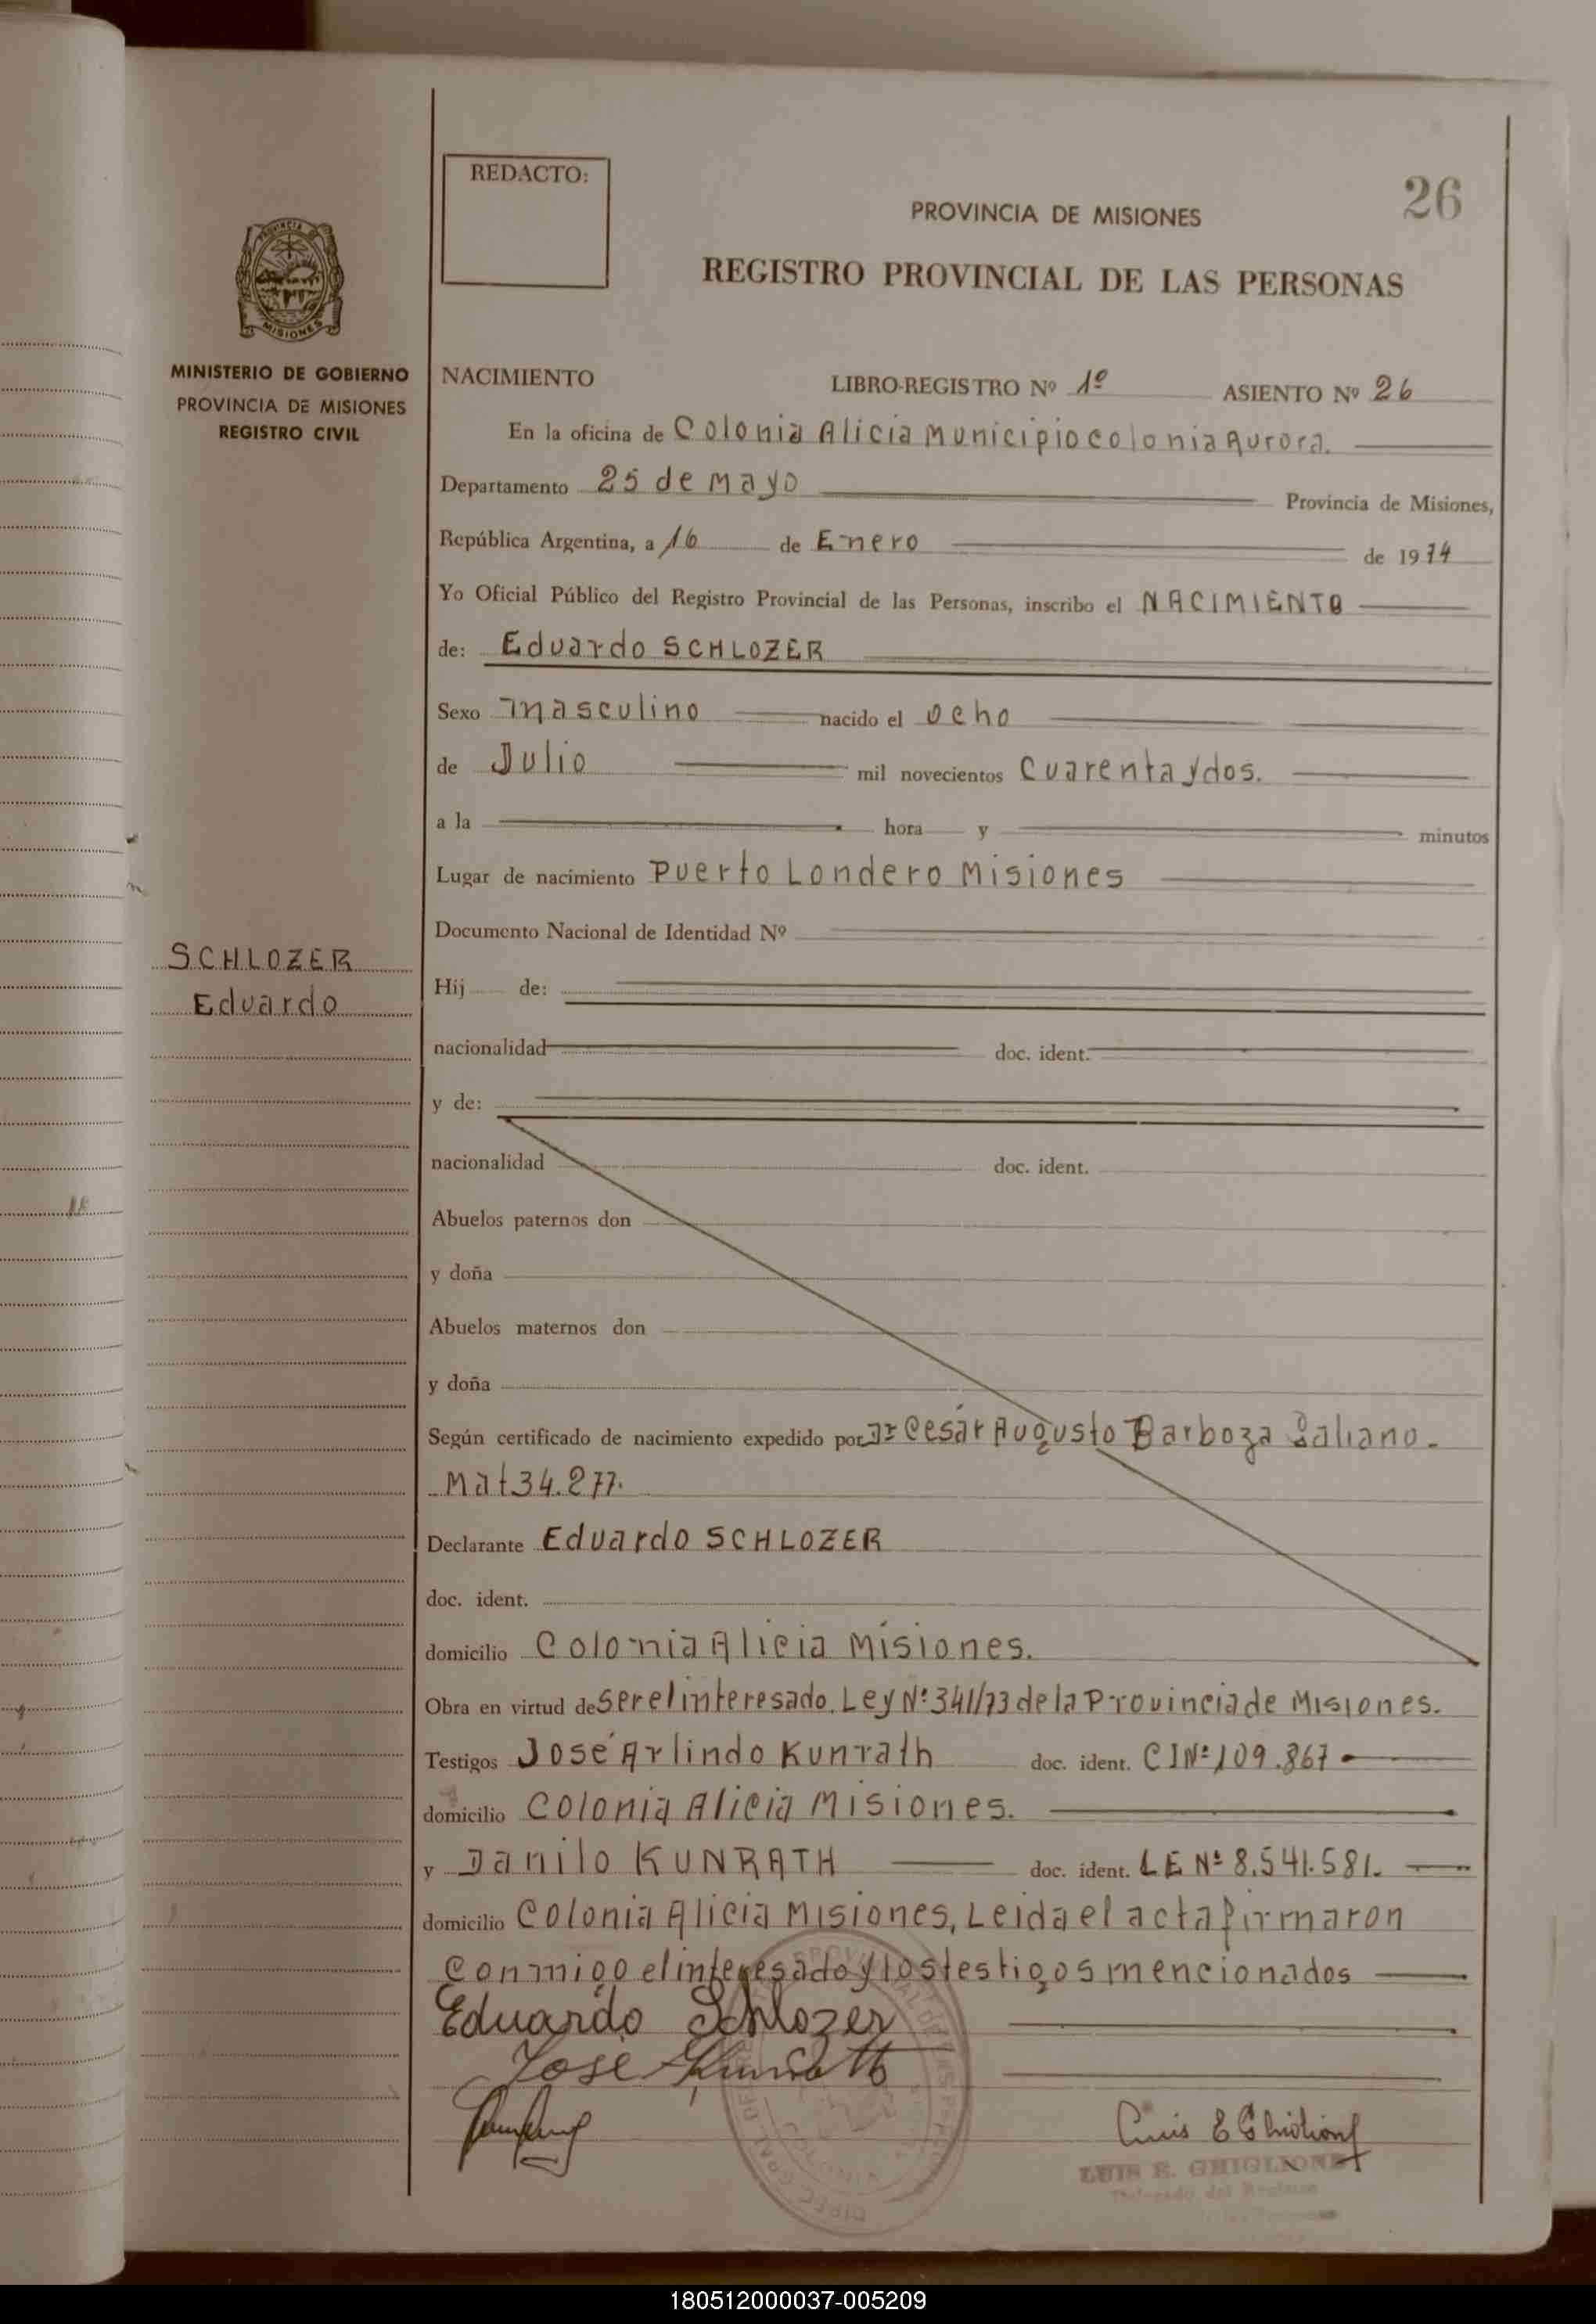 REDACTO:
26
PROVINCIA DE MISIONES
REGISTRO PROVINCIAL DE LAS PERSONAS
PROVINCIA DE
MISIONES
MINISTERIO DE GOBIERNO
PROVINCIA DE MISIONES
REGISTRO CIVIL
SCHLOZER
Eduardo
NACIMIENTO LIBRO-REGISTRO Nº 1º ASIENTO Nº 26
En la oficina de Colonia Alicia Municipio colonia Aurora.
Departamento 25 de Mayo Provincia de Misiones,
República Argentina, a 16 de Enero de 1974
Yo Oficial Público del Registro Provincial de las Personas, inscribo el NACIMIENTO
de: Eduardo SCHLOZER
Sexo masculino nacido el ocho
de Julio mil novecientos Cuarenta y dos.
a la hora y minutos
Lugar de nacimiento Puerto Londero Misiones
Documento Nacional de Identidad Nº
Hij de:
nacionalidad doc. ident.
y de:
nacionalidad doc. ident.
Abuelos paternos don
y doña
Abuelos maternos don
y doña
Según certificado de nacimiento expedido por Dr Cesár Augusto Barboza Galiano.
Mat 34.277.
Declarante Eduardo SCHLOZER
doc. ident.
domicilio Colonia Alicia Misiones.
Obra en virtud de ser el interesado. Ley Nº 341/73 de la Provincia de Misiones.
Testigos José Arlindo Kunrath doc. ident. CI Nº 109.867
domicilio Colonia Alicia Misiones.
y Danilo KUNRATH doc. ident. LE Nº 8.541.581.
domicilio Colonia Alicia Misiones, Leida el acta firmaron
Conmigo el interesado y los testigos mencionados
Eduardo Schlozer
José Kunrath
Luis E Ghiglione
LUIS E. GHIGLIONE
180512000037-005209